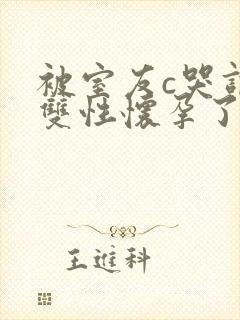 被室友c哭
雙性懷孕了
王進科